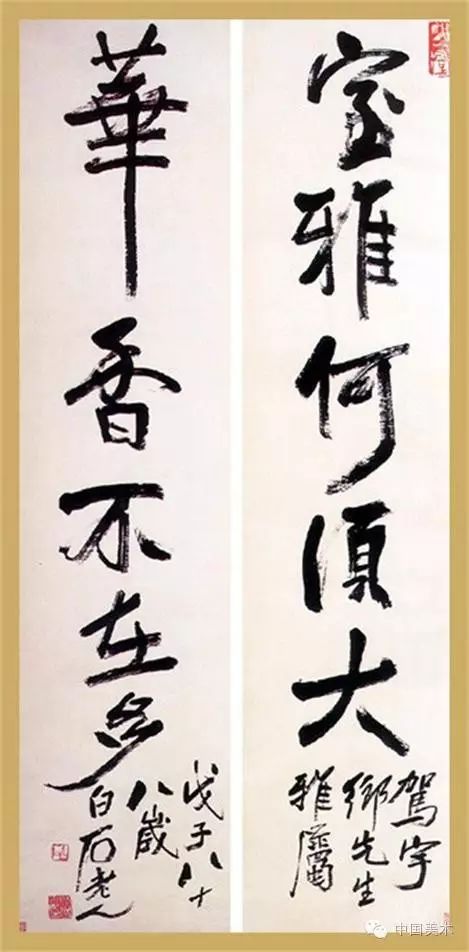 室雅何須大
駕宇
鄉先生
雅屬
華香不在多
戊子八十
八歲
白石老人
中国美术